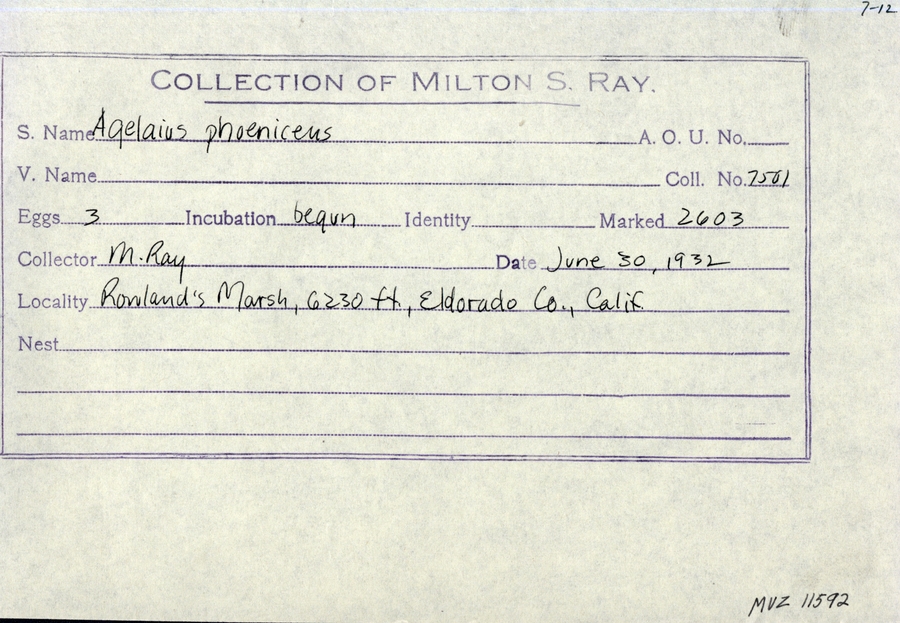 7-12
COLLECTION OF MILTON S. RAY.
S. Name Agelaius phoeniceus A. O. U. No.
V. Name Coll. No. 7501
Eggs 3 Incubation begun Identity Marked 2603
Collector M. Ray Date June 30, 1932
Locality Rowland's Marsh, 6230 ft., Eldorado Co., Calif.
Nest
MVZ 11592